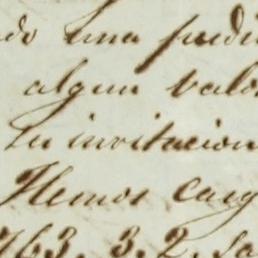 do una pudi
algun valo
su invitacion
Hemos carg
763. 3. 2. Sa